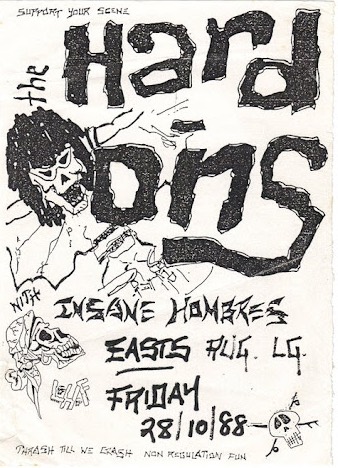 SUPPORT YOUR SCENE
the
Hard
Ons
WITH
INSANE HOMBRES
EASTS RUG. LG.
FRIDAY
28/10/88
THRASH TILL WE CRASH NON REGULATION FUN